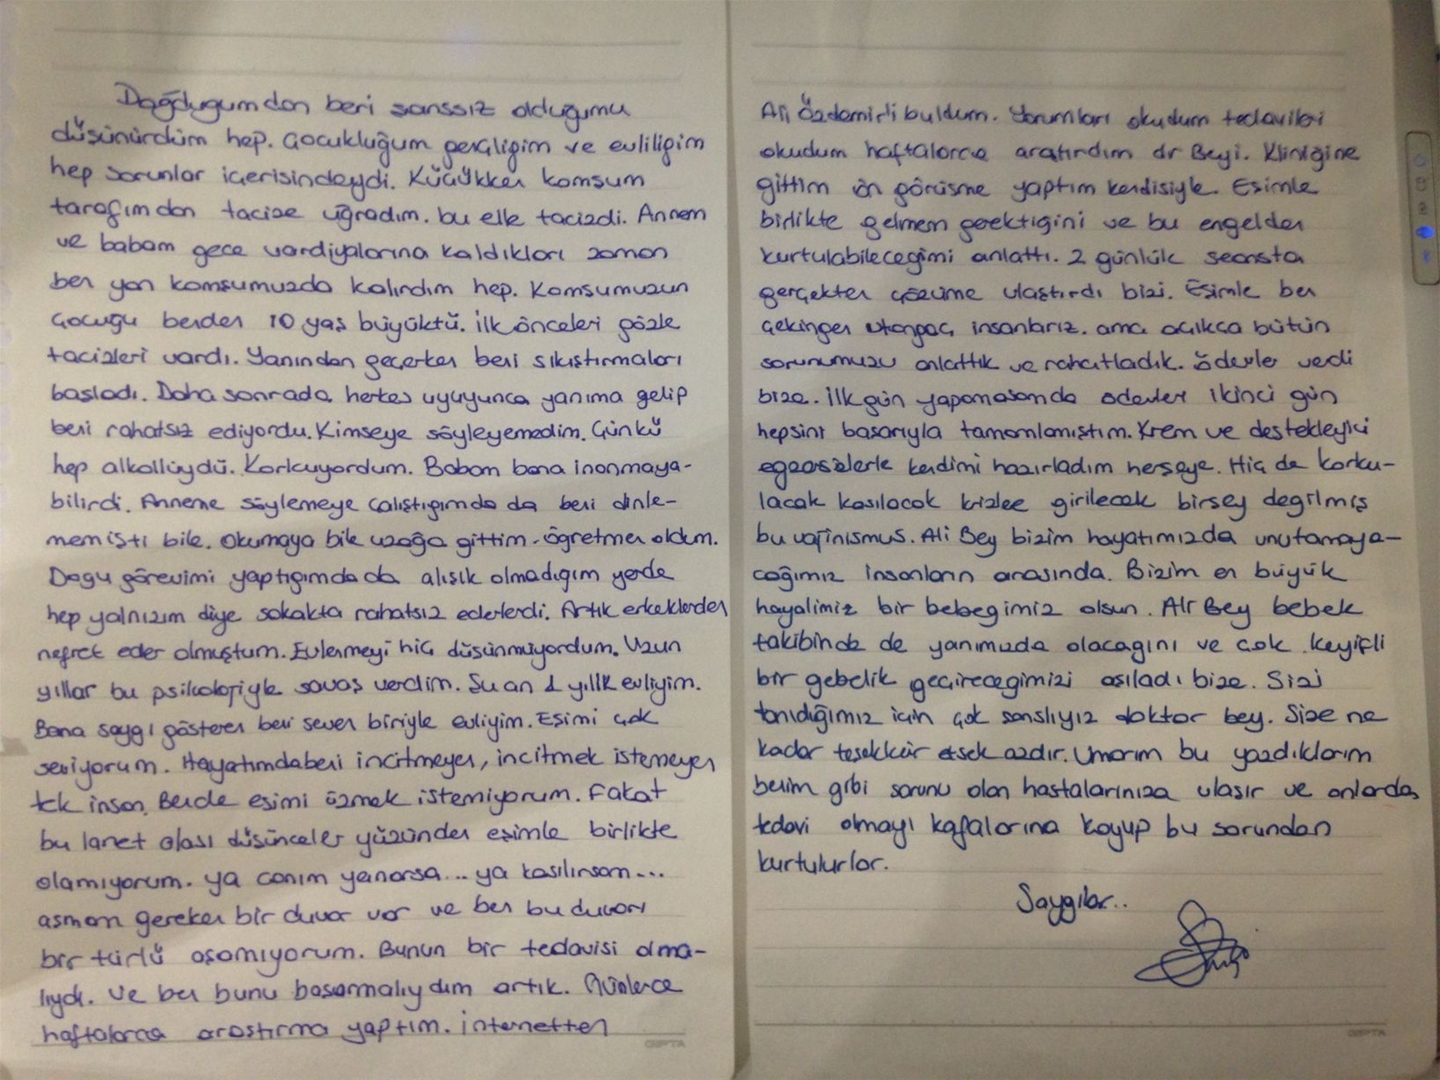 Doğduğumdan beri sanssız olduğumu
düşünürdüm hep. Çocukluğum gençliğim ve evliliğim
hep sorunlar içerisindeydi. Küçükken komsum
tarafımdan tacize uğradım. bu elle tacizdi. Annem
ve babam gece vardiyalarına kaldıkları zaman
ben yan komsumuzda kalırdım hep. Komsumuzun
Çocuğu benden 10 yaş büyüktü. ilk önceleri gözle
tacizleri vardı. Yanından geçerken beni sıkıştırmaları
başladı. Daha sonrada herkes uyuyunca yanıma gelip
beni rahatsız ediyordu. Kimseye söyleyemedim. Çünkü
hep alkollüydü. Korkuyordum. Babam bana inanmaya-
bilirdi. Anneme söylemeye çalıştığımda da beni dinle-
memişti bile. Okumaya bile uzağa gittim. öğretmen oldum.
Dogu görevimi yaptığımda da alışık olmadığım yerde
hep yalnızım diye sokakta rahatsız ederlerdi. Artık erkeklerden
nefret eder olmuştum. Evlenmeyi hiç düşünmüyordum. Uzun
yıllar bu psikolojiyle savaş verdim. Şu an 1 yıllk evliyim.
Bana saygı gösteren beni seven biriyle evliyim. Eşimi çok
seviyorum. Hayatımda beni incitmeyen, incitmek istemeyen
tek insan. Bende eşimi üzmek istemiyorum. Fakat
bu lanet olası düşünceler yüzünden eşimle birlikte
olamıyorum. ya canım yanarsa... ya kasılırsam...
aşmam gereken bir duvar var ve ben bu duvarı
bir türlü aşamıyorum. Bunun bir tedavisi olma-
lıydı. Ve ben bunu başarmalıydım artık. Günlerce
haftalarca araştırma yaptım. internetten
GIPTA
Ali Özdemirli buldum. Yorumları okudum tedavileri
okudum haftalarca araştırdım dr Beyi. Kliniğine
gittim ön görüşme yaptım kendisiyle. Eşimle
birlikte gelmem gerektiğini ve bu engelden
kurtulabileceğimi anlattı. 2 günlük seansta
gerçekten çözüme ulaştırdı bizi. Eşimle ben
çekingen utangaç insanlarız. ama açıkça bütün
sorunumuzu anlattık ve rahatladık. ödevler verdi
bize. İlk gün yapamasamda ödevleri ikinci gün
hepsini başarıyla tamamlamıştım. Krem ve destekleyici
egzersizlerle kendimi hazırladım herşeye. Hiç de korku-
lacak kasılacak krizlee girilecek birsey değilmiş
bu vajinismus. Ali Bey bizim hayatımızda unutamaya-
cağımız insanların arasında. Bizim en büyük
hayalimiz bir bebegimiz olsun. Ali Bey bebek
takibinde de yanımızda olacağını ve çok keyifli
bir gebelik geçireceğimizi aşıladı bize. Sizi
tanıdığımız için çok şanslıyız doktor bey. Size ne
kadar teşekkür etsek azdır. Umarım bu yazdıklarım
benim gibi sorunu olan hastalarınıza ulaşır ve onlarda
tedavi olmayı kafalarına koyup bu sorundan
kurtulurlar.
Saygılar..
GIPTA